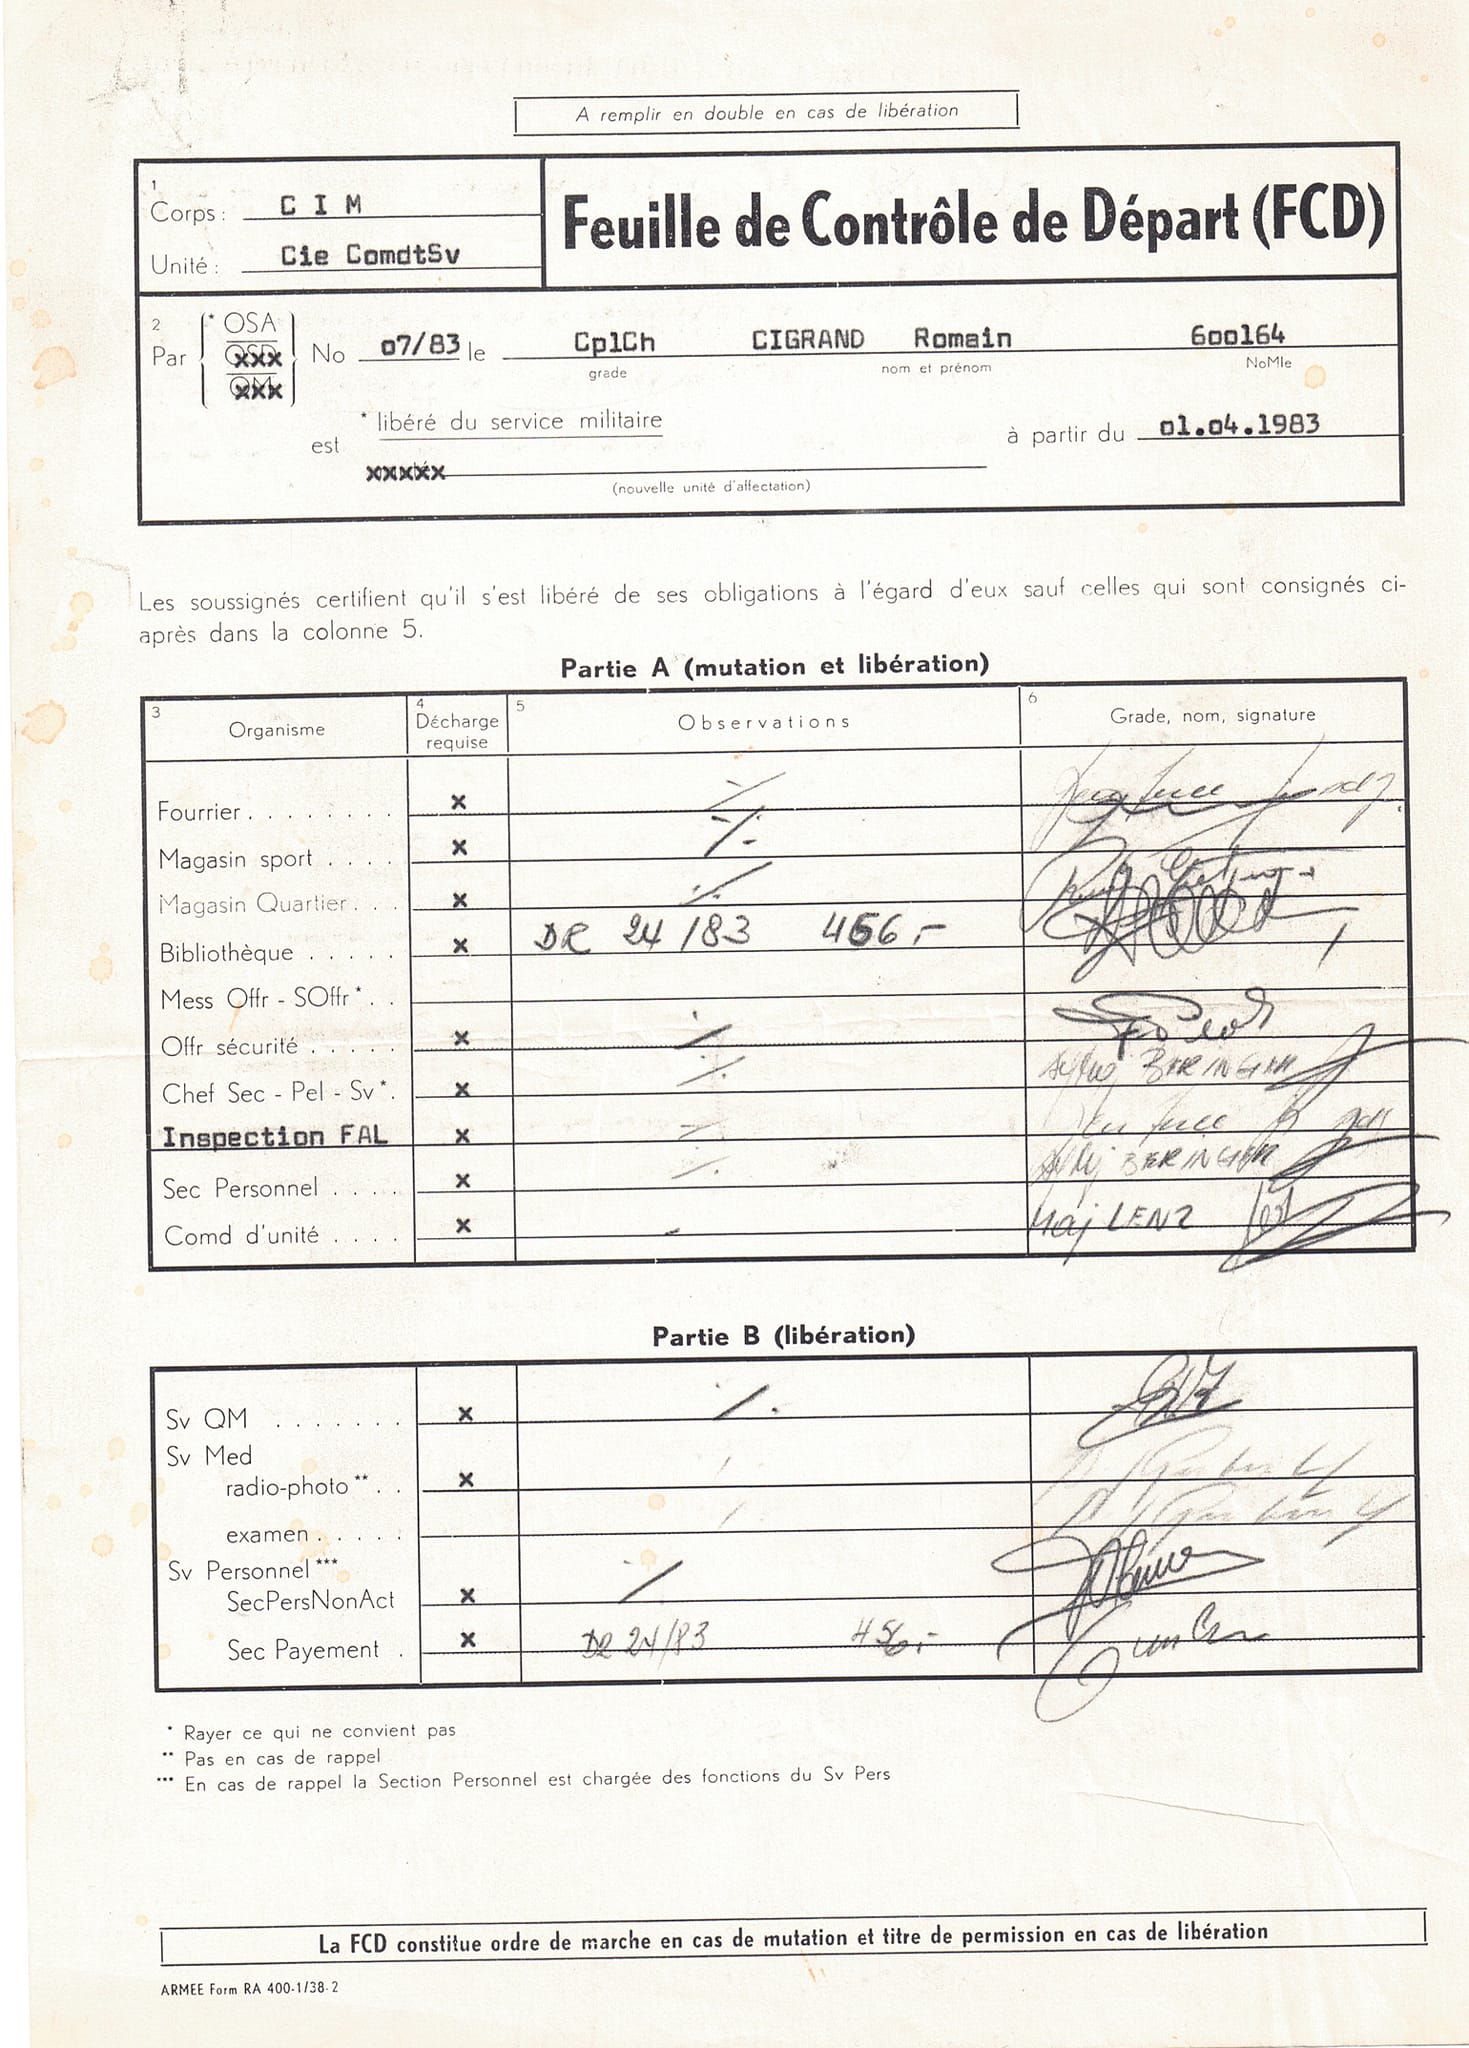 A remplir en double en cas de libération
1
Corps : C I M
Unité : Cie ComdtSv
Feuille de Contrôle de Départ (FCD)
2
Par * OSA
OSD xxx
OM xxx
No 07/83 le CplCh CIGRAND Romain 600164
grade nom et prénom NoMle
est * libéré du service militaire à partir du 01.04.1983
xxxxx
(nouvelle unité d'affectation)
Les soussignés certifient qu'il s'est libéré de ses obligations à l'égard d'eux sauf celles qui sont consignés ci-
après dans la colonne 5.
Partie A (mutation et libération)
3 Organisme 4 Décharge requise 5 Observations 6 Grade, nom, signature
Fourrier . . . . . . . . x
Magasin sport . . . . x
Magasin Quartier . . . x
Bibliothèque . . . . . x DR 24/83 456,-
Mess Offr - SOffr* . .
Offr sécurité . . . . . x
Chef Sec - Pel - Sv* . x BERINGER
Inspection FAL x
Sec Personnel . . . . x BERINGER
Comd d'unité . . . . x Maj LENZ
Partie B (libération)
Sv QM . . . . . . . x
Sv Med
radio-photo** . . x
examen . . . . .
Sv Personnel***
SecPersNonAct x
Sec Payement . x DR 24/83 456,-
* Rayer ce qui ne convient pas
** Pas en cas de rappel
*** En cas de rappel la Section Personnel est chargée des fonctions du Sv Pers
La FCD constitue ordre de marche en cas de mutation et titre de permission en cas de libération
ARMEE Form RA 400-1/38-2